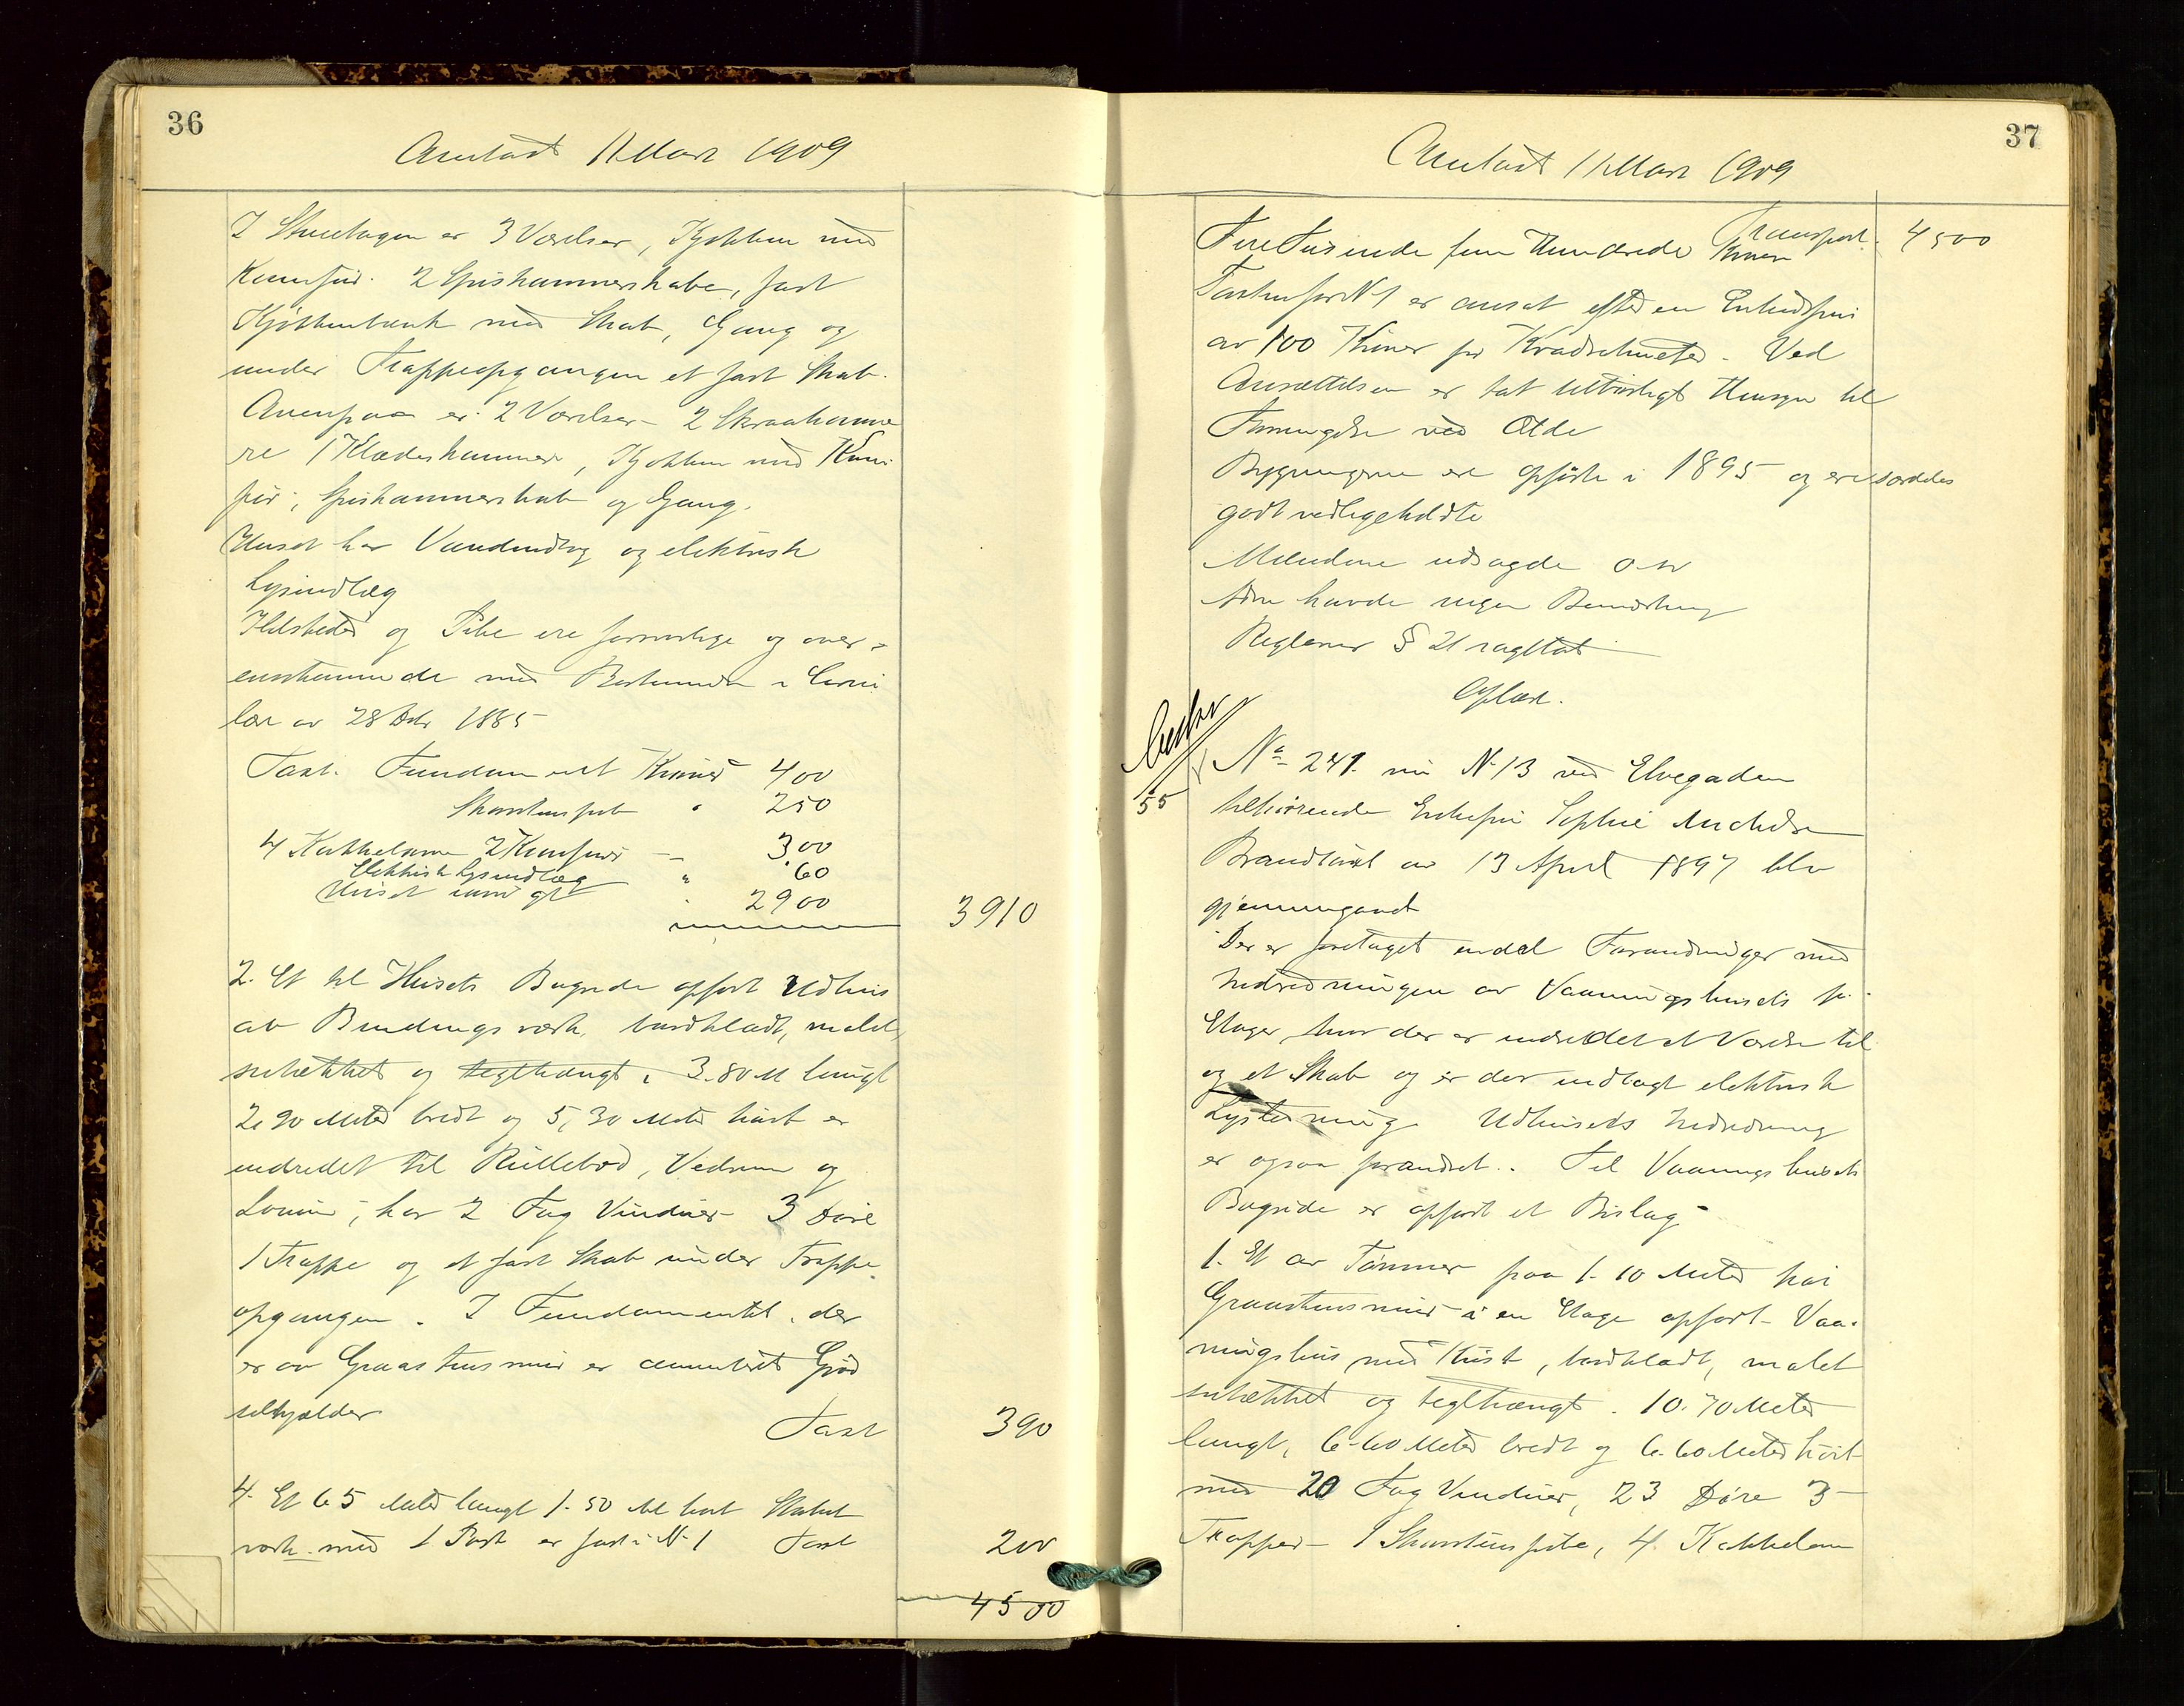 36
11 Mars 1909
I Stueetagen er 3 Værelser, Kjøkken med
Komfur. 2 Spiskammerskabe, fast
Kjøkkenbænk med Skab, Gang og
under Trappeopgangen et fast Skab.
Ovenpaa er 2 Værelser - 2 Skraakamme
re 1 Klædeskammer, Kjøkken med Kom
fur, Spiskammerskab og Gang.
Huset har Vandindlæg og elektrisk
Lysindlæg
Ildsteder og Pibe ere forsvarlige og over-
ensstemmende med Bestemmelsen i Cirku
lær av 28 Dcbr 1885
Taxt. Fundament Kroner 400
Skorstenspibe " 250
4 Kakkelovne 2 Komfurer - 300
Elektrisk Lysindlæg " 60
Huset iøvrigt " 2900
3910
2. Et til Husets Bagside opført Udhus
av Bindingsværk, bordklædt, malet,
sutækket og teglhængt, 3.80 M langt
2,90 Meter bredt og 5,30 Meter høit er
indredet til Rullebod, Vedrum og
Lokum, har 2 Fag Vinduer 3 Døre
1 Trappe og et fast Skab under Trappe
opgangen. I Fundamentet, der
er av Graastensmur er cementeret Gjød
selkjælder
Taxt 390
4. Et 65 Meter langt 1.50 M høit Stakit
værk med 1 Port er fast i N 1 Taxt 200
4500
37
11 Mars 1909
Transport. 4500
Fire Tusinde fem Hundrede Kroner
Taxten for N 1 er ansat efter en Enhedspris
av 100 Kroner pr Kvadratmeter. Ved
Ansættelsen er tat tilbørligt Hensyn til
Forringelse ved Ælde
Bygningerne ere opførte i 1895 og ere særdeles
godt vedligeholdte
Mændene udsagde osv
havde ingen Bemærkning
Reglerne § 21 iagttat
Oplæst.
55
No 241. nu N 13 ved Elvegaden
tilhørende Enkefru Sophie
Brandtaxt av 13 April 1897 blev
gjennemgaaet
Der er foretaget endel Forandringer med
Indredningen av Vaaningshusets
Etager, hvor der er indredet et Værelse til
og et Skab og er der indlagt elektrisk
Lysledning Udhusets Indredning
er ogsaa forandret. Til Vaaningshusets
Bagside er opført et Bislag
1. Et av Tømmer paa 1.10 Meter høi
Graastensmur i en Etage opført Vaa-
ningshus med Kvist, bordklædt, malet
sutækket og teglhængt. 10.70 Meter
langt, 6.60 Meter bredt og 6.60 Meter høit
med 20 Fag Vinduer, 23 Døre 3
Trapper - 1 Skorstenspibe, 4 Kakkelovne